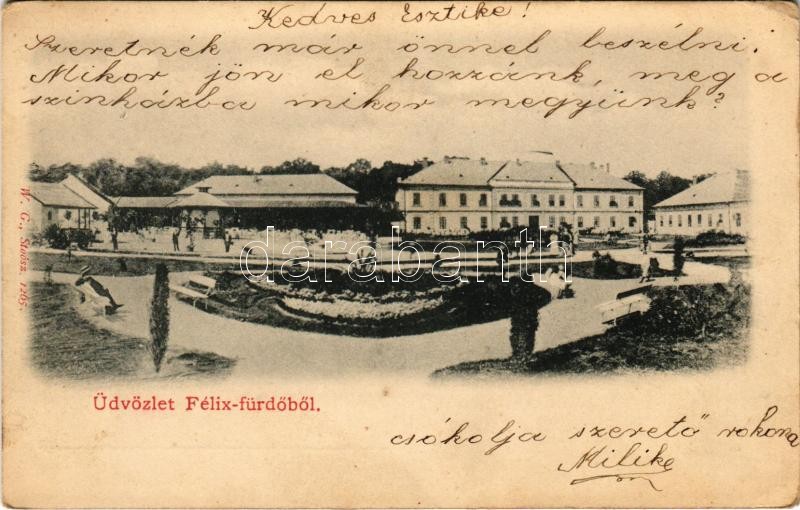 Kedves Esztike!
Szeretnék már önnel beszélni.
Mikor jön el hozzánk, meg a
szinházba mikor megyünk?
W. G., Stoósz. 1205
darabanth
Üdvözlet Félix-fürdőből.
csókolja szerető rokona
Milike